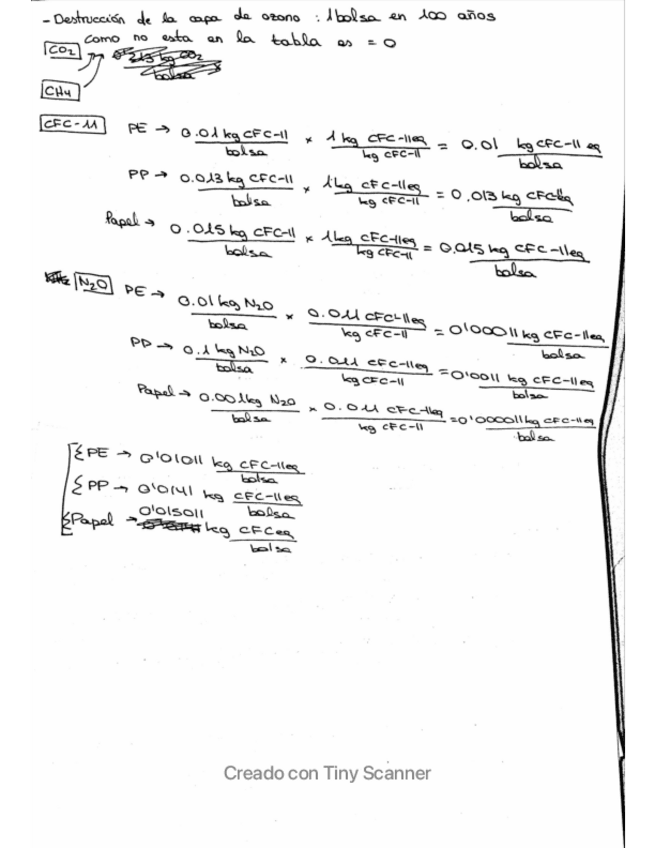 - Destrucción de la capa de ozono : 1 bolsa en 100 años
como no esta en la tabla es = 0
CO2
CH4
CFC-11 PE → 0.01 kg CFC-11/bolsa × 1 kg CFC-11eq/kg CFC-11 = 0.01 kg CFC-11 eq/bolsa
PP → 0.013 kg CFC-11/bolsa × 1 kg CFC-11eq/kg CFC-11 = 0.013 kg CFC-11eq/bolsa
Papel → 0.015 kg CFC-11/bolsa × 1 kg CFC-11eq/kg CFC-11 = 0.015 kg CFC-11eq/bolsa
N2O PE → 0.01 kg N2O/bolsa × 0.011 CFC-11eq/kg CFC-11 = 0'00011 kg CFC-11eq/bolsa
PP → 0.1 kg N2O/bolsa × 0.011 CFC-11eq/kg CFC-11 = 0'0011 kg CFC-11eq/bolsa
Papel → 0.001 kg N2O/bolsa × 0.011 CFC-11eq/kg CFC-11 = 0'000011 kg CFC-11eq/bolsa
Σ PE → 0'01011 kg CFC-11eq/bolsa
Σ PP → 0'0141 kg CFC-11eq/bolsa
Σ Papel → 0'015011 kg CFCeq/bolsa
Creado con Tiny Scanner